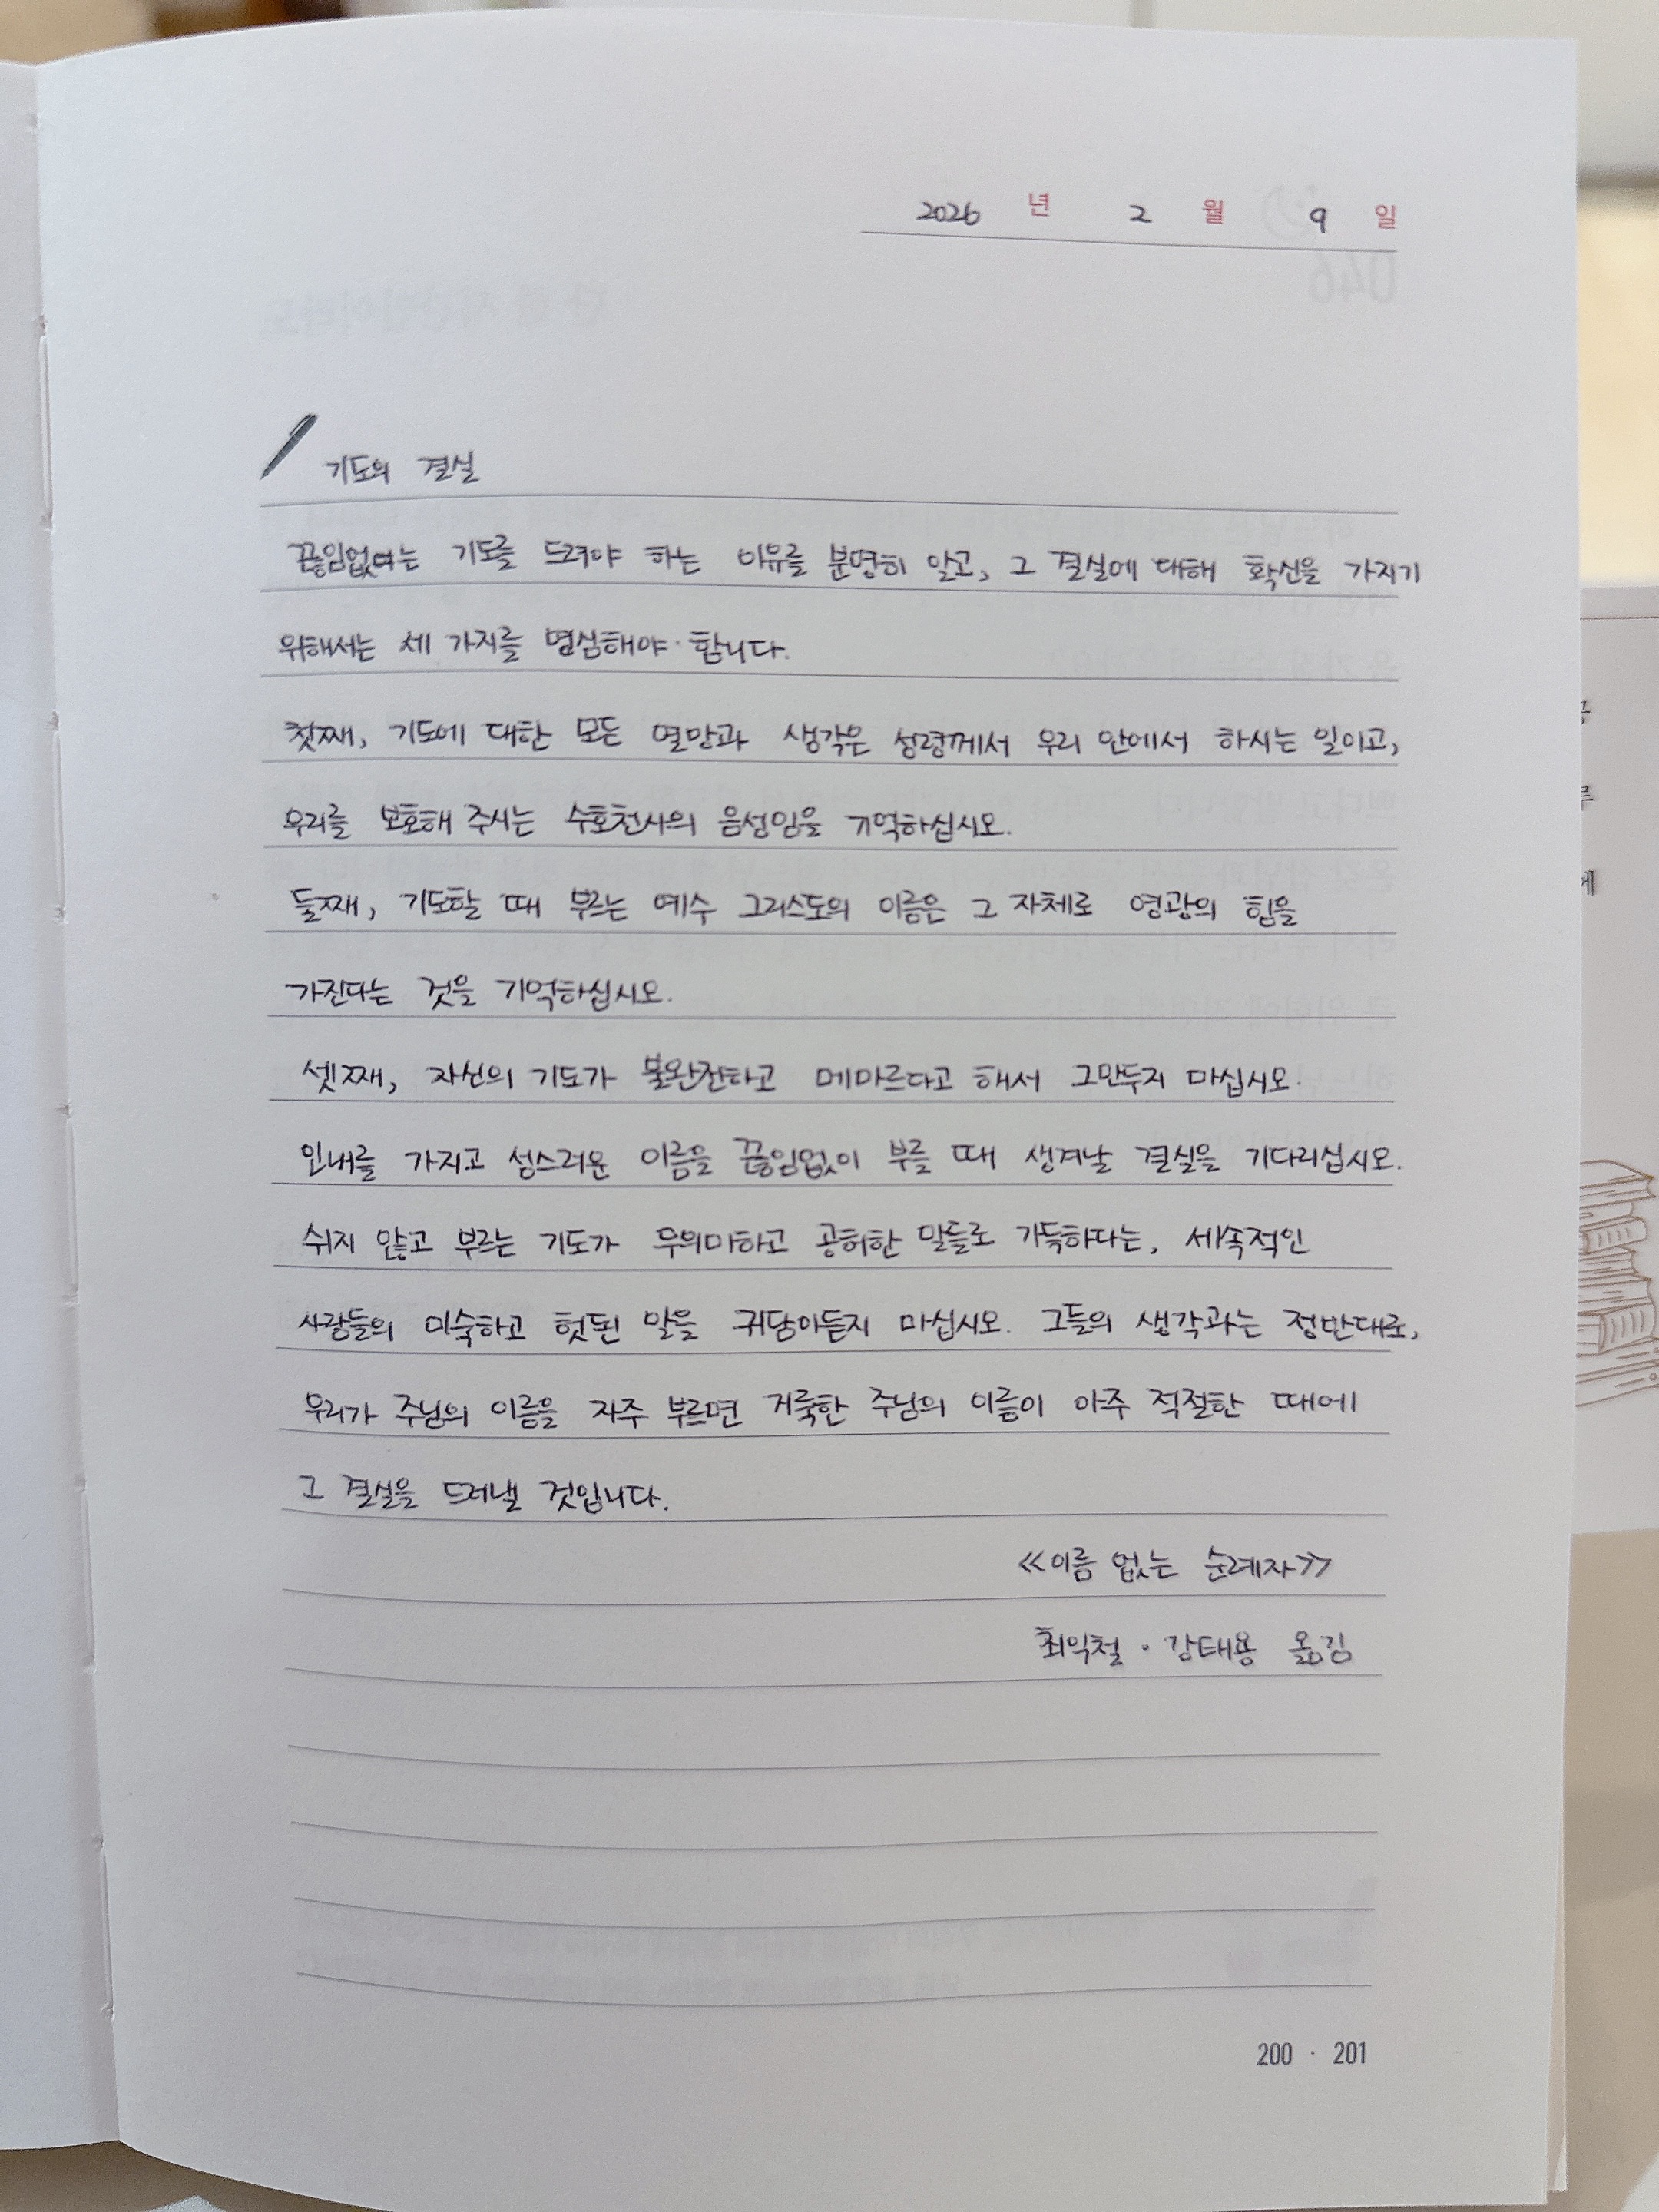 2026 년 2 월 9 일
기도의 결실
끊임없는 기도를 드려야 하는 이유를 분명히 알고, 그 결실에 대해 확신을 가지기
위해서는 세 가지를 명심해야 합니다.
첫째, 기도에 대한 모든 열망과 생각은 성령께서 우리 안에서 하시는 일이고,
우리를 보호해 주시는 수호천사의 음성임을 기억하십시오.
둘째, 기도할 때 부르는 예수 그리스도의 이름은 그 자체로 영광의 힘을
가진다는 것을 기억하십시오.
셋째, 자신의 기도가 불완전하고 메마르다고 해서 그만두지 마십시오.
인내를 가지고 성스러운 이름을 끊임없이 부를 때 생겨날 결실을 기다리십시오.
쉬지 않고 부르는 기도가 무의미하고 공허한 말들로 가득하다는, 세속적인
사람들의 미숙하고 헛된 말을 귀담아듣지 마십시오. 그들의 생각과는 정반대로,
우리가 주님의 이름을 자주 부르면 거룩한 주님의 이름이 아주 적절한 때에
그 결실을 드러낼 것입니다.
<<이름 없는 순례자>>
최익철 · 강태용 옮김
200 · 201